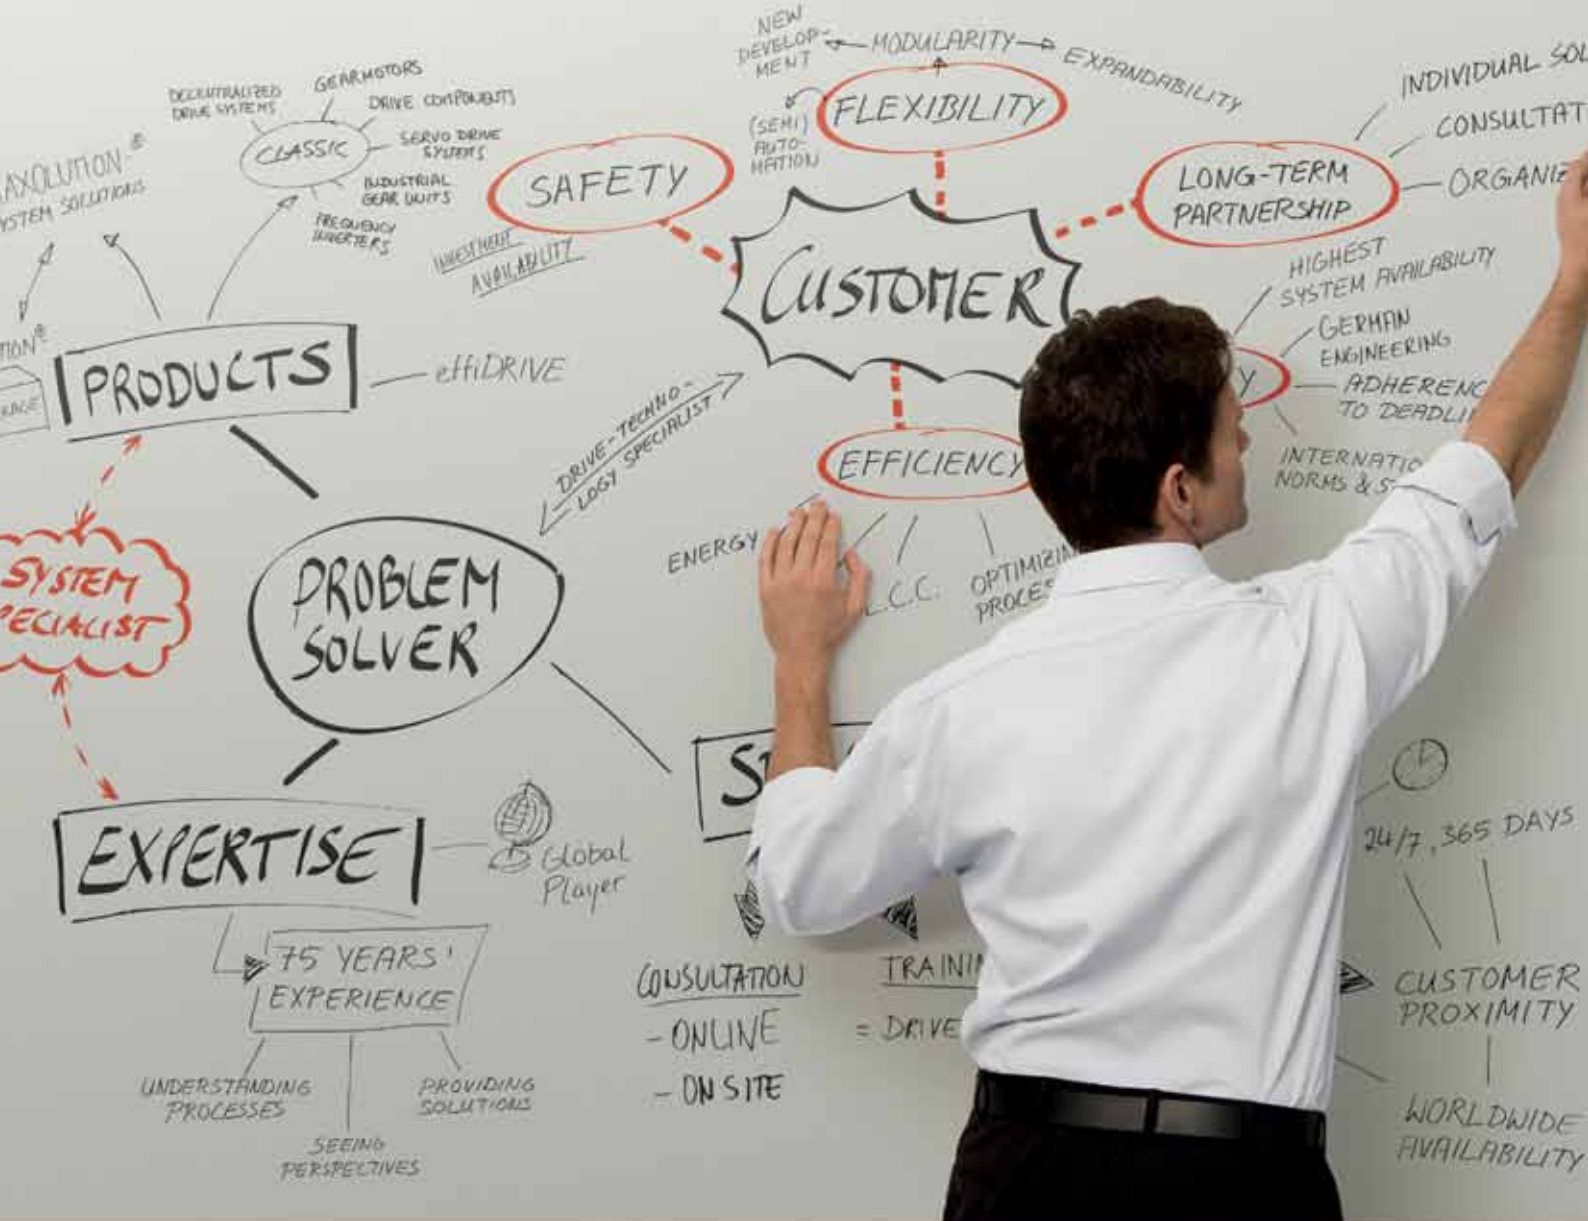 DECENTRALIZED
DRIVE SYSTEMS
GEARMOTORS
DRIVE COMPONENTS
CLASSIC
SERVO DRIVE
SYSTEMS
INDUSTRIAL
GEAR UNITS
FREQUENCY
INVERTERS
AXOLUTION®
YSTEM SOLUTIONS
TION®
RAGE
PRODUCTS
effiDRIVE
SYSTEM
PECIALIST
PROBLEM
SOLVER
DRIVE-TECHNO-
LOGY SPECIALIST
EXPERTISE
Global
Player
75 YEARS'
EXPERIENCE
UNDERSTANDING
PROCESSES
SEEING
PERSPECTIVES
PROVIDING
SOLUTIONS
NEW
DEVELOP-
MENT
MODULARITY
EXPANDABILITY
FLEXIBILITY
(SEMI)
AUTO-
MATION
SAFETY
INVESTMENT
AVAILABILITY
CUSTOMER
LONG-TERM
PARTNERSHIP
INDIVIDUAL SOL
CONSULTAT
ORGANIZ
HIGHEST
SYSTEM AVAILABILITY
GERMAN
ENGINEERING
Y
ADHERENC
TO DEADLI
INTERNATIO
NORMS & S
EFFICIENCY
ENERGY
L.C.C.
OPTIMIZIN
PROCES
S
CONSULTATION
- ONLINE
- ON SITE
TRAINI
= DRIVE
24/7, 365 DAYS
CUSTOMER
PROXIMITY
WORLDWIDE
AVAILABILITY